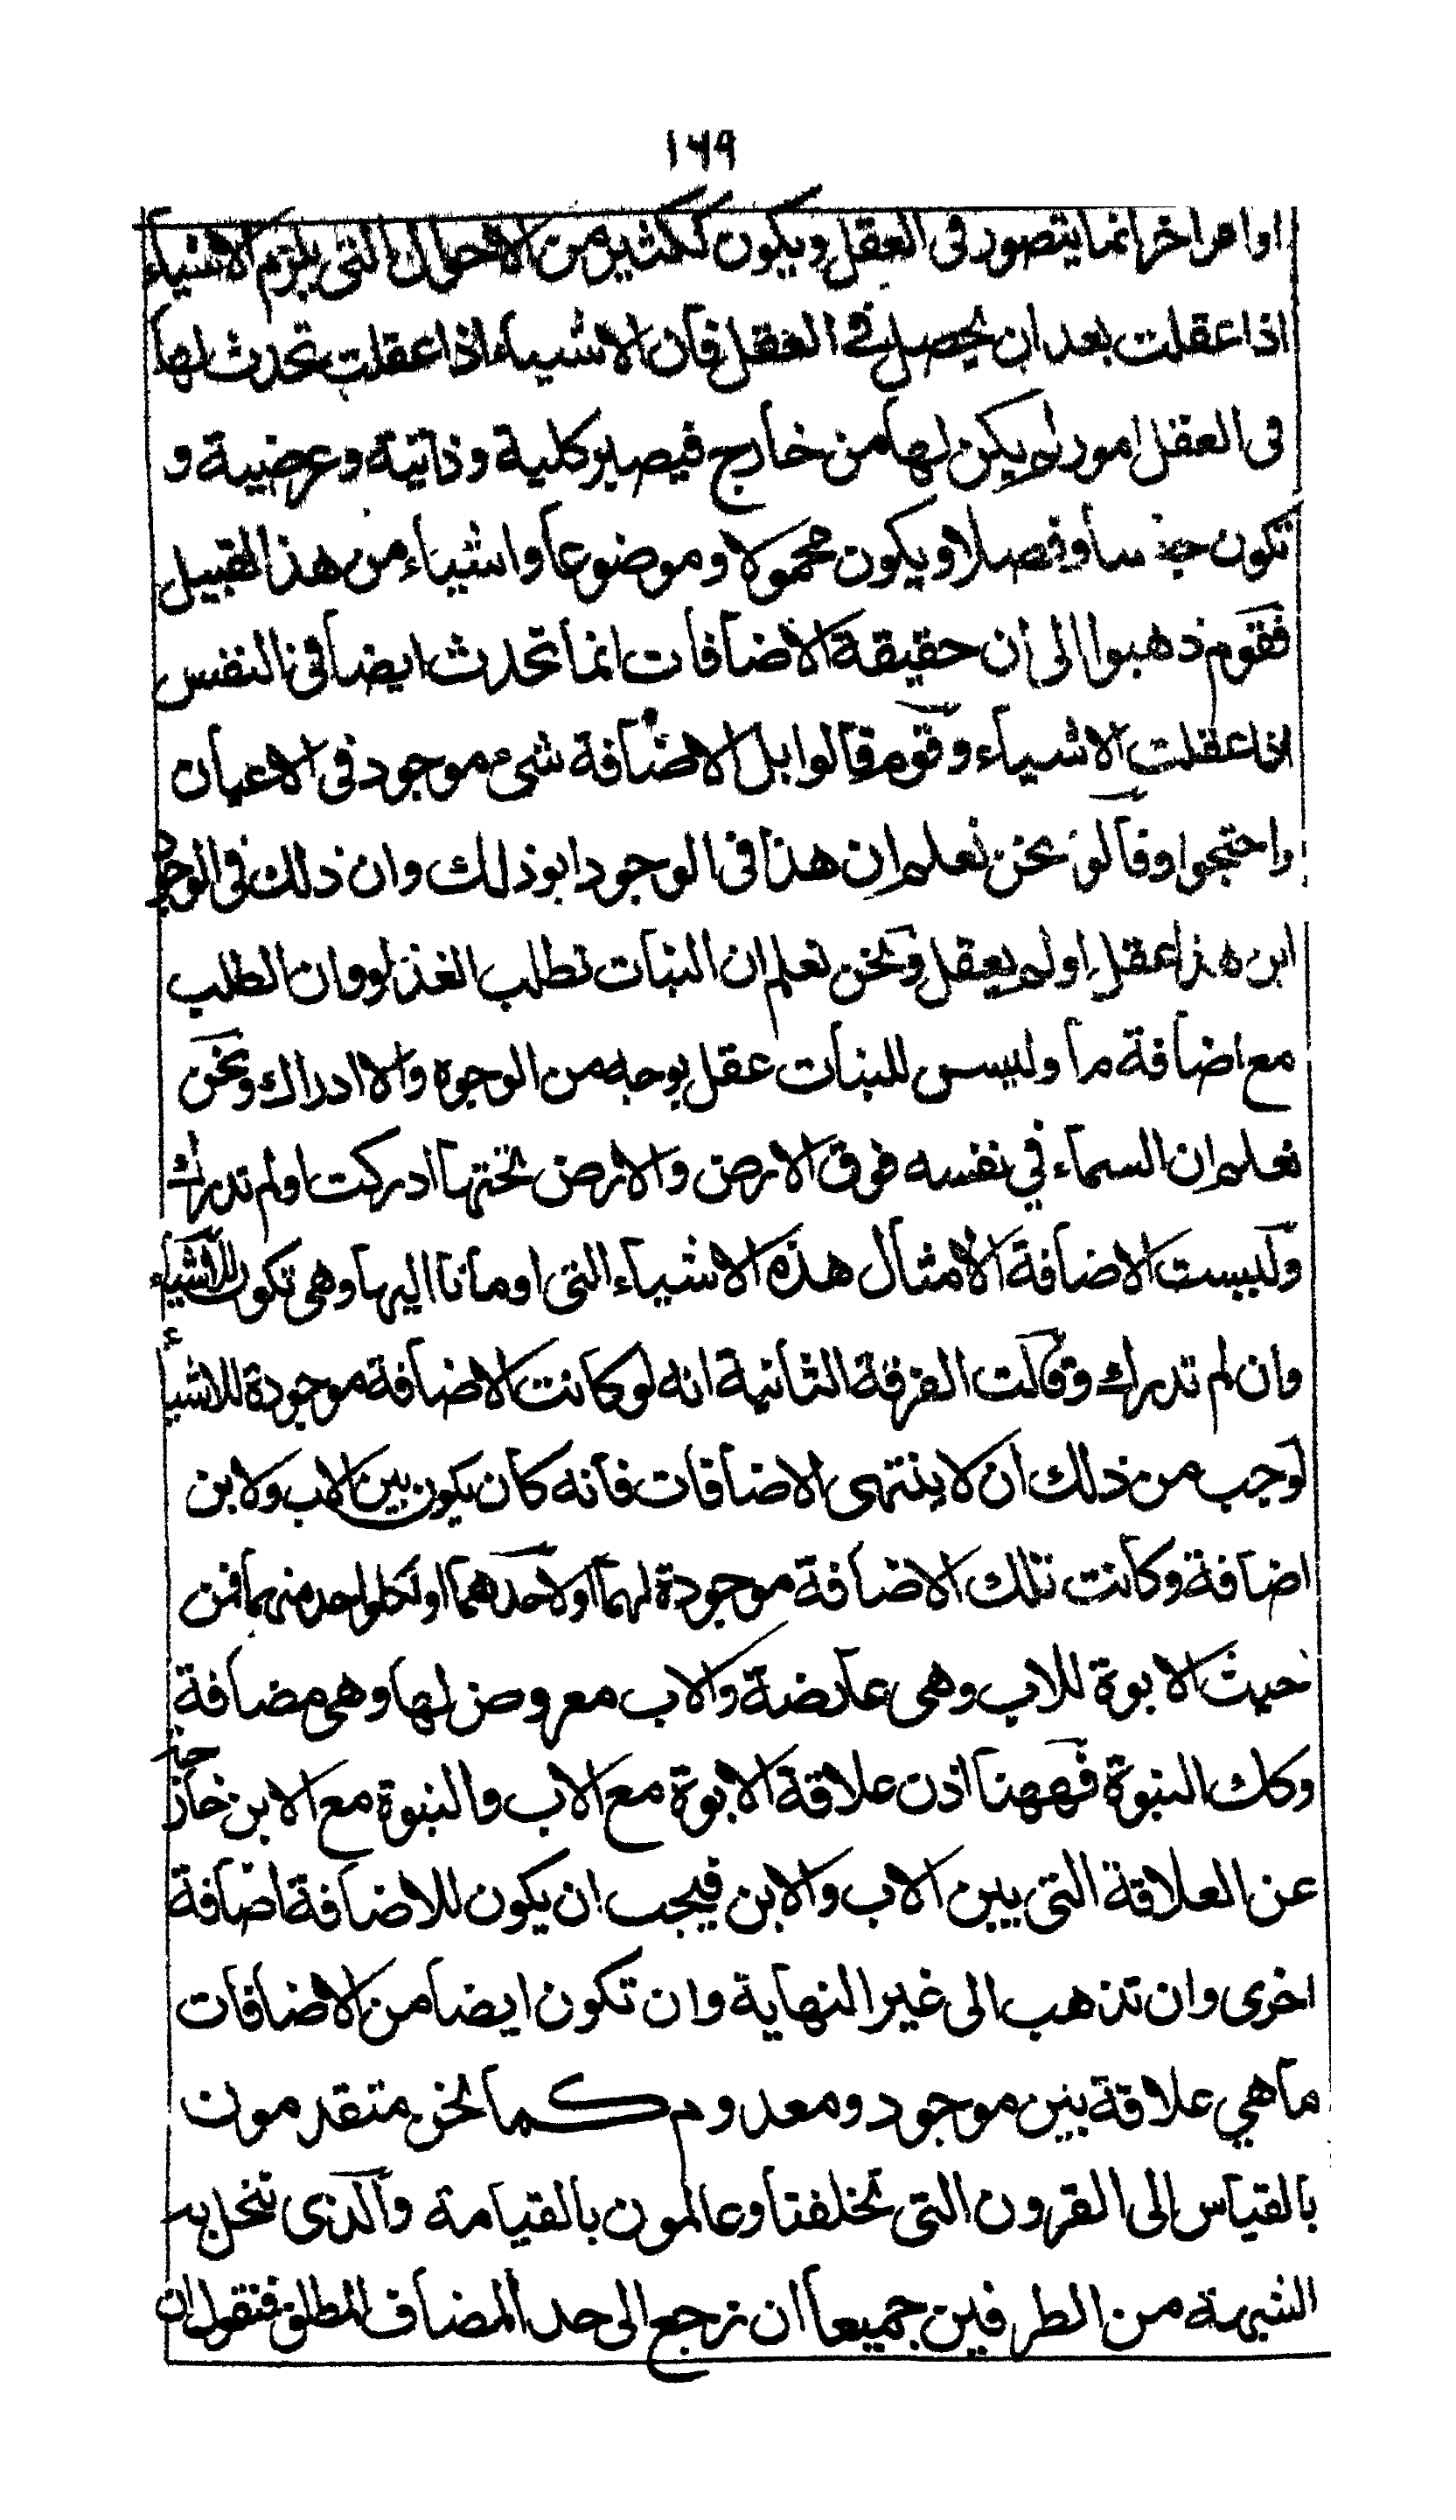 ١٦٩
او امر اخر انما يتصور فى العقل ويكون ككثير من الاحوال التى يلزم الاشياء
اذا عقلت بعد ان يحصل فى العقل فان الاشياء اذا عقلت تحدث لها
فى العقل امور لم يكن لها من خارج فيصير كلية وذاتية وعرضية و
تكون جنسا وفصلا ويكون محمولا وموضوعا واشياء من هذا القبيل
فقوم ذهبوا الى ان حقيقة الاضافات انما تحدث ايضا فى النفس
اذا عقلت الاشياء وقوم قالوا بل الاضافة شىء موجود فى الاعيان
واحتجوا وقالو نحن نعلم ان هذا فى الوجود ابو ذلك وان ذلك فى الوجود
ابن هذا عقل او لم يعقل ونحن نعلم ان النبات تطلب الغذا وان الطلب
مع اضافة ما وليس للنبات عقل بوجه من الوجوه والا ادراك ونحن
نعلم ان السماء في نفسه فوق الارض والارض تحتها ادركت اولم تدرك
وليست الاضافة الا امثال هذه الاشياء التى اومانا اليها وهى تكون للاشياء
وان لم تدرك وقالت الفرقة الثانية انه لو كانت الاضافة موجودة للاشياء
لوجب من ذلك ان لا ينتهى الاضافات فانه كان يكون بين الاب ولابن
اضافة وكانت تلك الاضافة موجودة لهما اولاحدهما اولكل واحد منهما فمن
حيث الابوة للاب وهى عارضة والاب معروض لها وهى مضافة
وكك البنوة فههنا اذن علاقة الابوة مع الاب والبنوة مع الابن خارجة
عن العلاقة التى بين الاب والابن فيجب ان يكون للاضافة اضافة
اخرى وان تذهب الى غير النهاية وان تكون ايضا من الاضافات
ما هي علاقة بين موجود ومعدوم كما نحن متقدمون
بالقياس الى القرون التى تخلفنا وعالمون بالقيامة والذى تنحل به
الشبهة من الطرفين جميعا ان نرجع الى حد المضاف المطلق فنقول ان